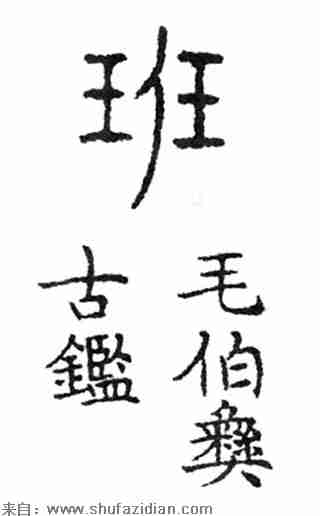 班
毛伯彝
古鑑
来自:www.shufazidian.com